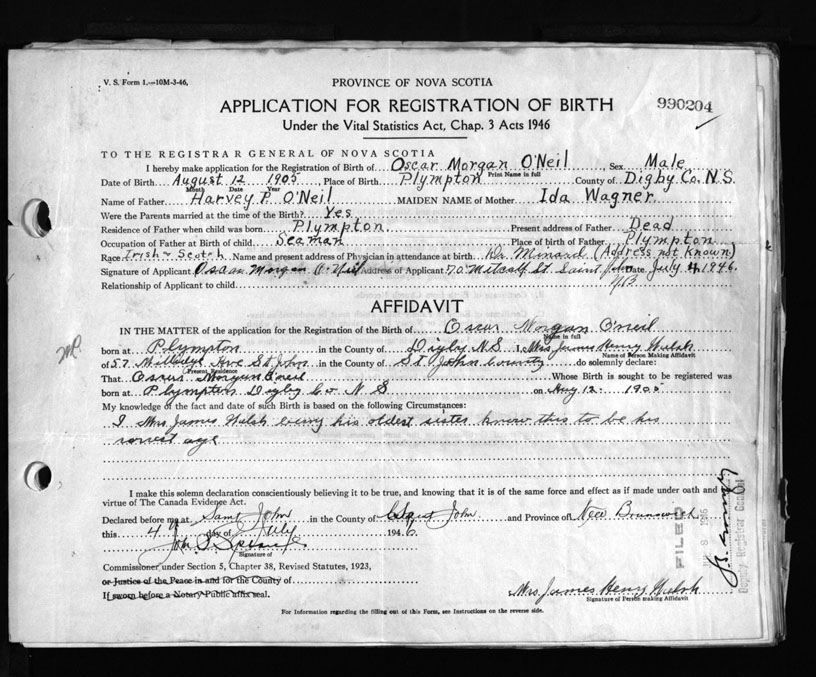 V. S. Form 1.—10M-3-46.
PROVINCE OF NOVA SCOTIA
APPLICATION FOR REGISTRATION OF BIRTH
990204
Under the Vital Statistics Act, Chap. 3 Acts 1946
TO THE REGISTRAR GENERAL OF NOVA SCOTIA
I hereby make application for the Registration of Birth of Oscar Morgan O'Neil Sex Male
Print Name in full
Date of Birth August 12 1905 Place of Birth Plympton County of Digby Co. N.S.
Month Date Year
Name of Father Harvey P. O'Neil MAIDEN NAME of Mother Ida Wagner
Were the Parents married at the time of the Birth? Yes
Residence of Father when child was born Plympton Present address of Father Dead
Occupation of Father at Birth of child Seaman Place of birth of Father Plympton
Race Irish - Scotch Name and present address of Physician in attendance at birth Dr. Minard (Address not known)
Signature of Applicant Oscar Morgan O'Neil Address of Applicant 70 Metcalf St. Saint John Date July 4 1946.
Relationship of Applicant to child N.B.
AFFIDAVIT
IN THE MATTER of the application for the Registration of Birth of Oscar Morgan O'neil
Name in full
born at Plympton in the County of Digby N.S I, Mrs James Henry Walsh
Name of Person Making Affidavit
of 57 Millidge Ave St John in the County of St John County do solemnly declare:
Present Residence
That Oscar Morgan O'neil Whose Birth is sought to be registered was
born at Plympton Digby Co N S on Aug 12 1905
My knowledge of the fact and date of such Birth is based on the following Circumstances:
I Mrs James Walsh being his oldest sister know this to be his
age
I make this solemn declaration conscientiously believing it to be true, and knowing that it is of the same force and effect as if made under oath and by
virtue of The Canada Evidence Act.
Declared before me at Saint John in the County of Saint John and Province of New Brunswick
this 4th day of July 1946
Signature of
Commissioner under Section 5, Chapter 38, Revised Statutes, 1923,
or Justice of the Peace in and for the County of
If sworn before a Notary Public affix seal.
Mrs. James Henry Walsh
Signature of Person making Affidavit
For Information regarding the filling out of this Form, see Instructions on the reverse side.
FILED
Deputy Registrar General